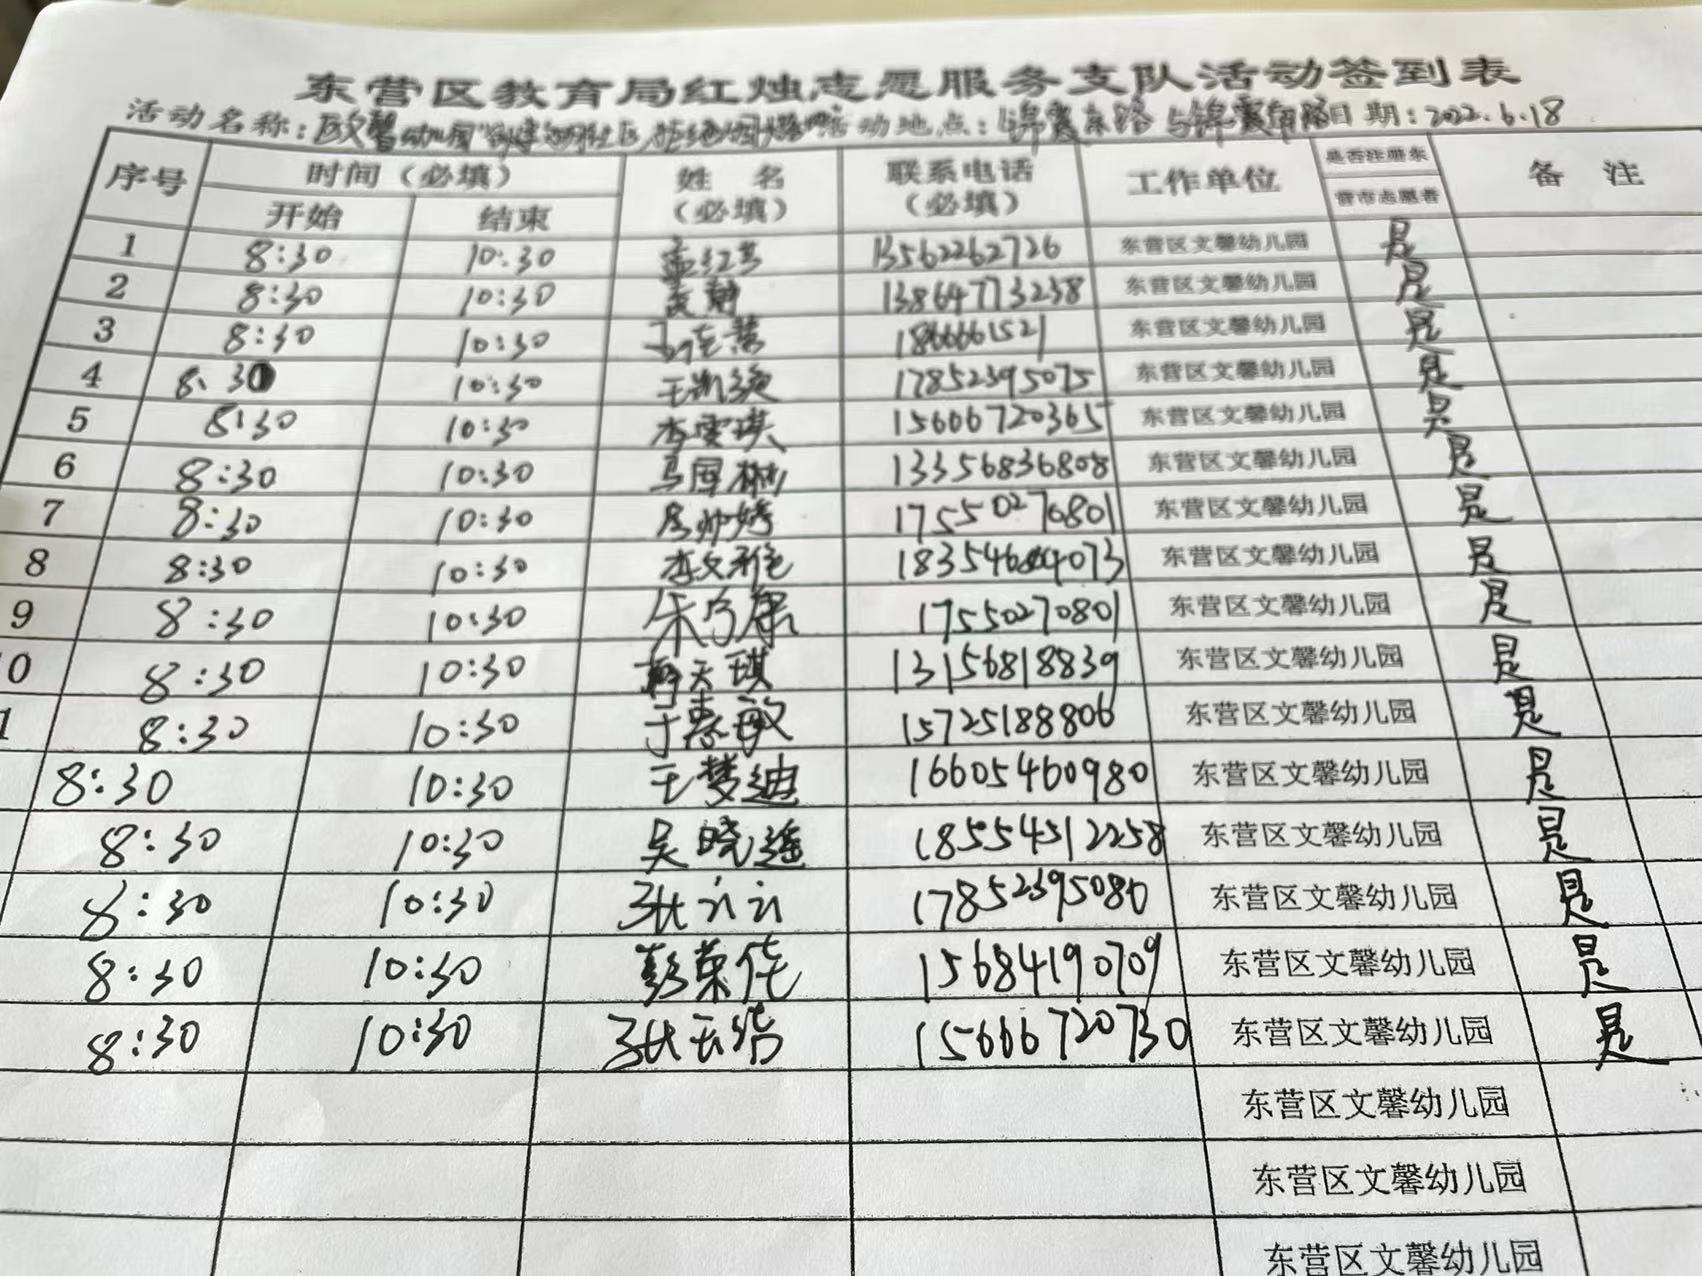 东营区教育局红烛志愿服务支队活动签到表
活动名称： 活动地点：锦霞东路与锦霞 日期：2022.6.18
序号 时间（必填） 姓 名（必填） 联系电话（必填） 工作单位 是否注册东营市志愿者 备 注
开始 结束
1 8:30 10:30 13562262726 东营区文馨幼儿园 是
2 8:30 10:30 13864773238 东营区文馨幼儿园 是
3 8:30 10:30 东营区文馨幼儿园 是
4 8:30 10:30 17852395075 东营区文馨幼儿园 是
5 8:30 10:30 李雪琪 15606720365 东营区文馨幼儿园 是
6 8:30 10:30 马国彬 13356836808 东营区文馨幼儿园 是
7 8:30 10:30 17550276801 东营区文馨幼儿园 是
8 8:30 10:30 李文雅 东营区文馨幼儿园 是
9 8:30 10:30 17550270801 东营区文馨幼儿园 是
0 8:30 10:30 天琪 13156818839 东营区文馨幼儿园 是
1 8:30 10:30 于惠敏 15725188806 东营区文馨幼儿园 是
8:30 10:30 王梦迪 16605460980 东营区文馨幼儿园 是
8:30 10:30 吴晓遥 18554512258 东营区文馨幼儿园 是
8:30 10:30 张 17852395080 东营区文馨幼儿园 是
8:30 10:30 彭荣佳 15684190709 东营区文馨幼儿园 是
8:30 10:30 张云 15666720730 东营区文馨幼儿园 是
东营区文馨幼儿园
东营区文馨幼儿园
东营区文馨幼儿园